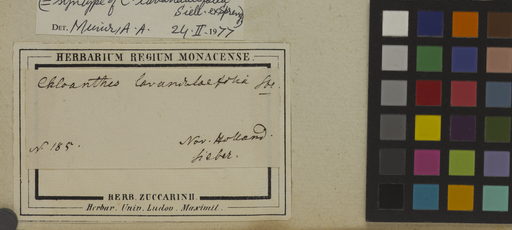 (= Syntype of C. lavandulifolia
Sieb. ex Spreng)
DET. Munir, A. A. 24-II-1977
HERBARIUM REGIUM MONACENSE.
Chloanthes lavandulaefolia Sbr.
N. 185.
Nov. Holland.
Sieber.
HERB. ZUCCARINII.
Herbar. Univ. Ludov. Maximil.